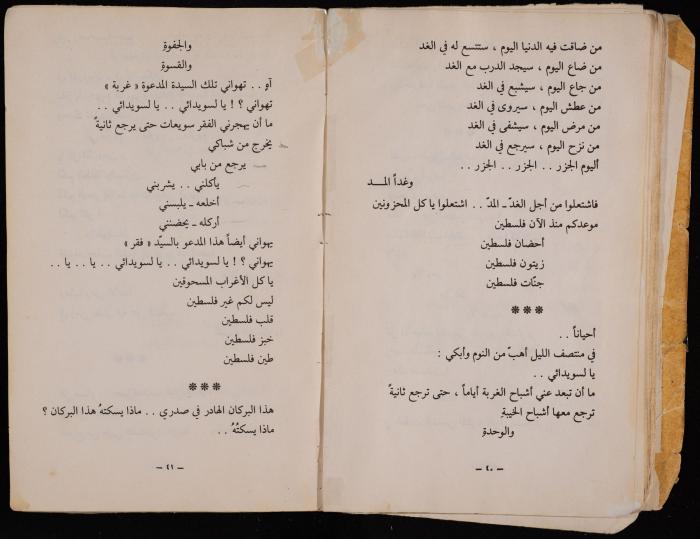 من ضاقت فيه الدنيا اليوم ، ستتسع له في الغد
من ضاع اليوم ، سيجد الدرب مع الغد
من جاع اليوم ، سيشبع في الغد
من عطش اليوم ، سيروى في الغد
من مرض اليوم ، سيشفى في الغد
من نزح اليوم ، سيرجع في الغد
أليوم الجزر . . الجزر . . الجزر . .
وغداً المـــد
فاشتعلوا من أجل الغدّ ـ المدّ . . اشتعلوا يا كل المحزونين
موعدكم منذ الآن فلسطين
أحضان فلسطين
زيتون فلسطين
جنّات فلسطين
***
أحياناً . .
في منتصف الليل أهبّ من النوم وأبكي :
يا لسويدائي . .
ما أن تبعد عني أشباح الغربة أياماً ، حتى ترجع ثانيةً
ترجع معها أشباح الخيبةِ
والوحدةِ
– ٤٠ –
والجفوةِ
والقسوةِ
آهِ . . تهواني تلك السيدة المدعوة « غربة »
تهواني ؟ ! يا لسويدائي . . يا لسويدائي . .
ما أن يهجرني الفقر سويعات حتى يرجع ثانيةً
يخرج من شباكي
يرجع من بابي
يأكلني . . يشربني
أخلعه ـ يلبسني
أركله ـ يحضنني
يهواني أيضاً هذا المدعو بالسيّد « فقر »
يهواني ؟ ! يا لسويدائي . . يا لسويدائي . . يا . . يا . .
يا كل الأغراب المسحوقين
ليس لكم غير فلسطين
قلب فلسطين
خبز فلسطين
طين فلسطين
***
هذا البركان الهادر في صدري . . ماذا يسكتهُ هذا البركان ؟
ماذا يسكتُهُ . .
– ٤١ –